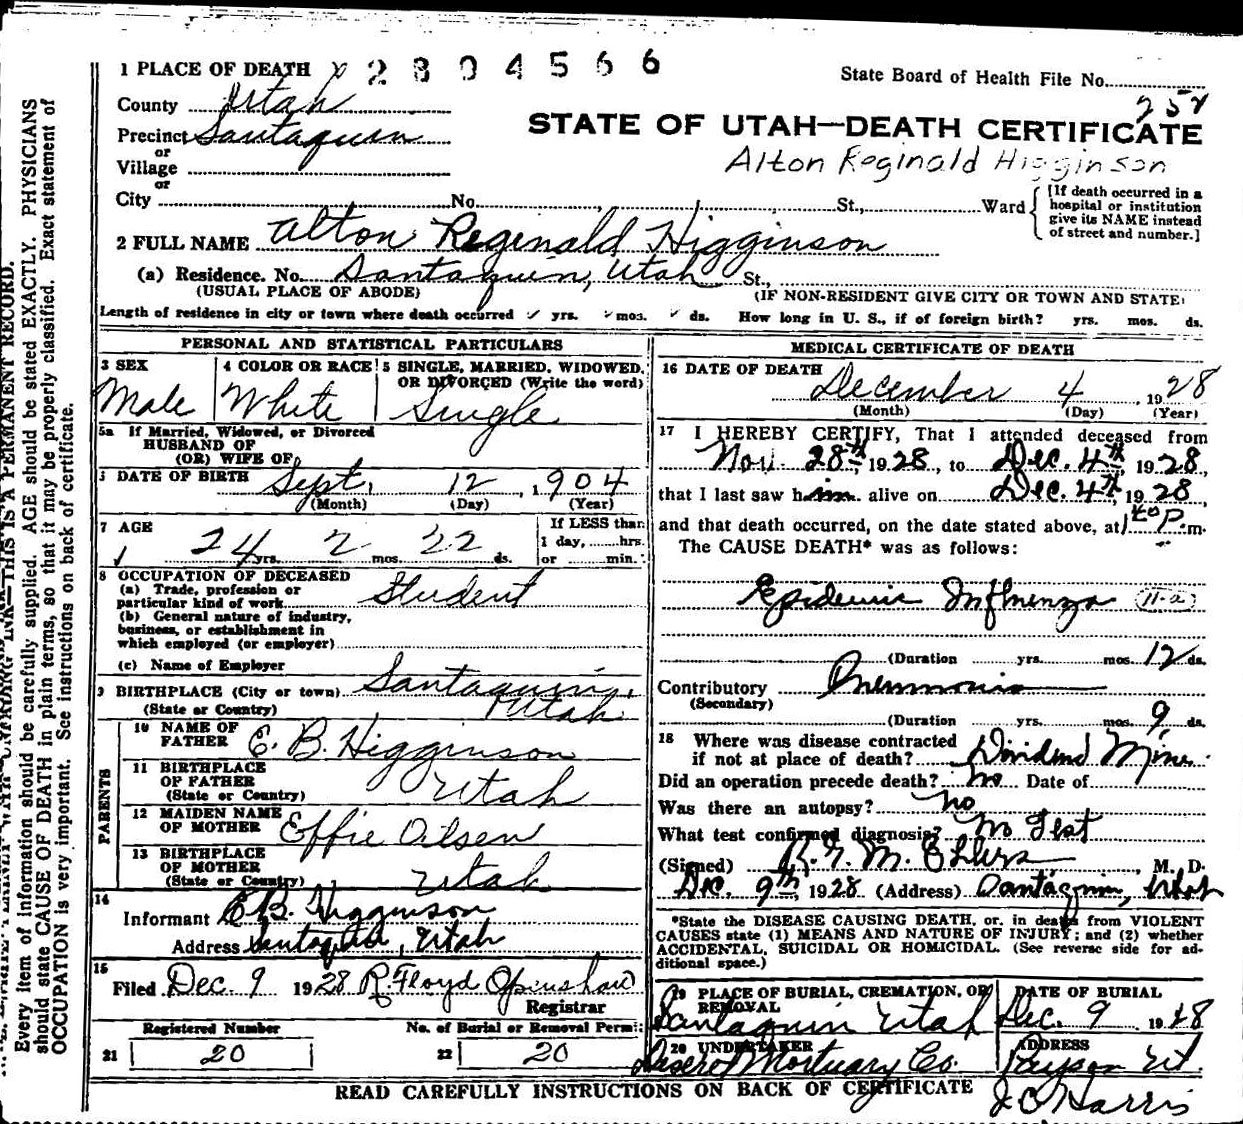 1 PLACE OF DEATH 2804566
State Board of Health File No.
County Utah
258
Precinct Santaquin
STATE OF UTAH—DEATH CERTIFICATE
or
Village
Alton Reginald Higginson
or
City No. St., Ward [If death occurred in a hospital or institution give its NAME instead of street and number.]
2 FULL NAME Alton Reginald Higginson
(a) Residence. No. Santaquin, Utah St.,
(USUAL PLACE OF ABODE) (IF NON-RESIDENT GIVE CITY OR TOWN AND STATE)
Length of residence in city or town where death occurred yrs. mos. ds. How long in U. S., if of foreign birth? yrs. mos. ds.
PERSONAL AND STATISTICAL PARTICULARS
3 SEX Male
4 COLOR OR RACE White
5 SINGLE, MARRIED, WIDOWED, OR DIVORCED (Write the word) Single
5a If Married, Widowed, or Divorced
HUSBAND OF
(OR) WIFE OF
6 DATE OF BIRTH Sept. 12, 1904
(Month) (Day) (Year)
7 AGE 24 yrs. 2 mos. 22 ds.
If LESS than
1 day, hrs.
or min.
8 OCCUPATION OF DECEASED
(a) Trade, profession or
particular kind of work Student
(b) General nature of industry,
business, or establishment in
which employed (or employer)
(c) Name of Employer
9 BIRTHPLACE (City or town) Santaquin,
(State or Country) Utah.
PARENTS
10 NAME OF
FATHER E. B. Higginson
11 BIRTHPLACE
OF FATHER
(State or Country) Utah
12 MAIDEN NAME
OF MOTHER Effie Oilsen
13 BIRTHPLACE
OF MOTHER
(State or Country) Utah
14
Informant E B. Higginson
Address Santaquin, Utah
15
Filed Dec. 9 1928 R. Floyd Openshaw
Registrar
Registered Number No. of Burial or Removal Permit
21 20 22 20
MEDICAL CERTIFICATE OF DEATH
16 DATE OF DEATH
December 4, 1928
(Month) (Day) (Year)
17 I HEREBY CERTIFY, That I attended deceased from
Nov. 28th 1928, to Dec. 4th, 1928,
that I last saw him alive on Dec. 4th, 1928,
and that death occurred, on the date stated above, at P. m.
The CAUSE DEATH* was as follows:
Epidemic Influenza 11-a
(Duration yrs. mos. 12 ds.
Contributory Pneumonia
(Secondary)
(Duration yrs. mos. 9 ds.
18 Where was disease contracted
if not at place of death? Dividend Mine.
Did an operation precede death? No Date of
Was there an autopsy? No
What test confirmed diagnosis? No Test
(Signed) M. D.
Dec. 9th, 1928 (Address) Santaquin, Utah
*State the DISEASE CAUSING DEATH, or, in deaths from VIOLENT
CAUSES state (1) MEANS AND NATURE OF INJURY; and (2) whether
ACCIDENTAL, SUICIDAL OR HOMICIDAL. (See reverse side for ad-
ditional space.)
19 PLACE OF BURIAL, CREMATION, OR REMOVAL DATE OF BURIAL
Santaquin Utah Dec. 9 1928
20 UNDERTAKER ADDRESS
Deseret Mortuary Co. Payson Ut.
READ CAREFULLY INSTRUCTIONS ON BACK OF CERTIFICATE
J C Harris
THIS IS A PERMANENT RECORD.
Every item of information should be carefully supplied. AGE should be stated EXACTLY. PHYSICIANS
should state CAUSE OF DEATH in plain terms, so that it may be properly classified. Exact statement of
OCCUPATION is very important. See instructions on back of certificate.